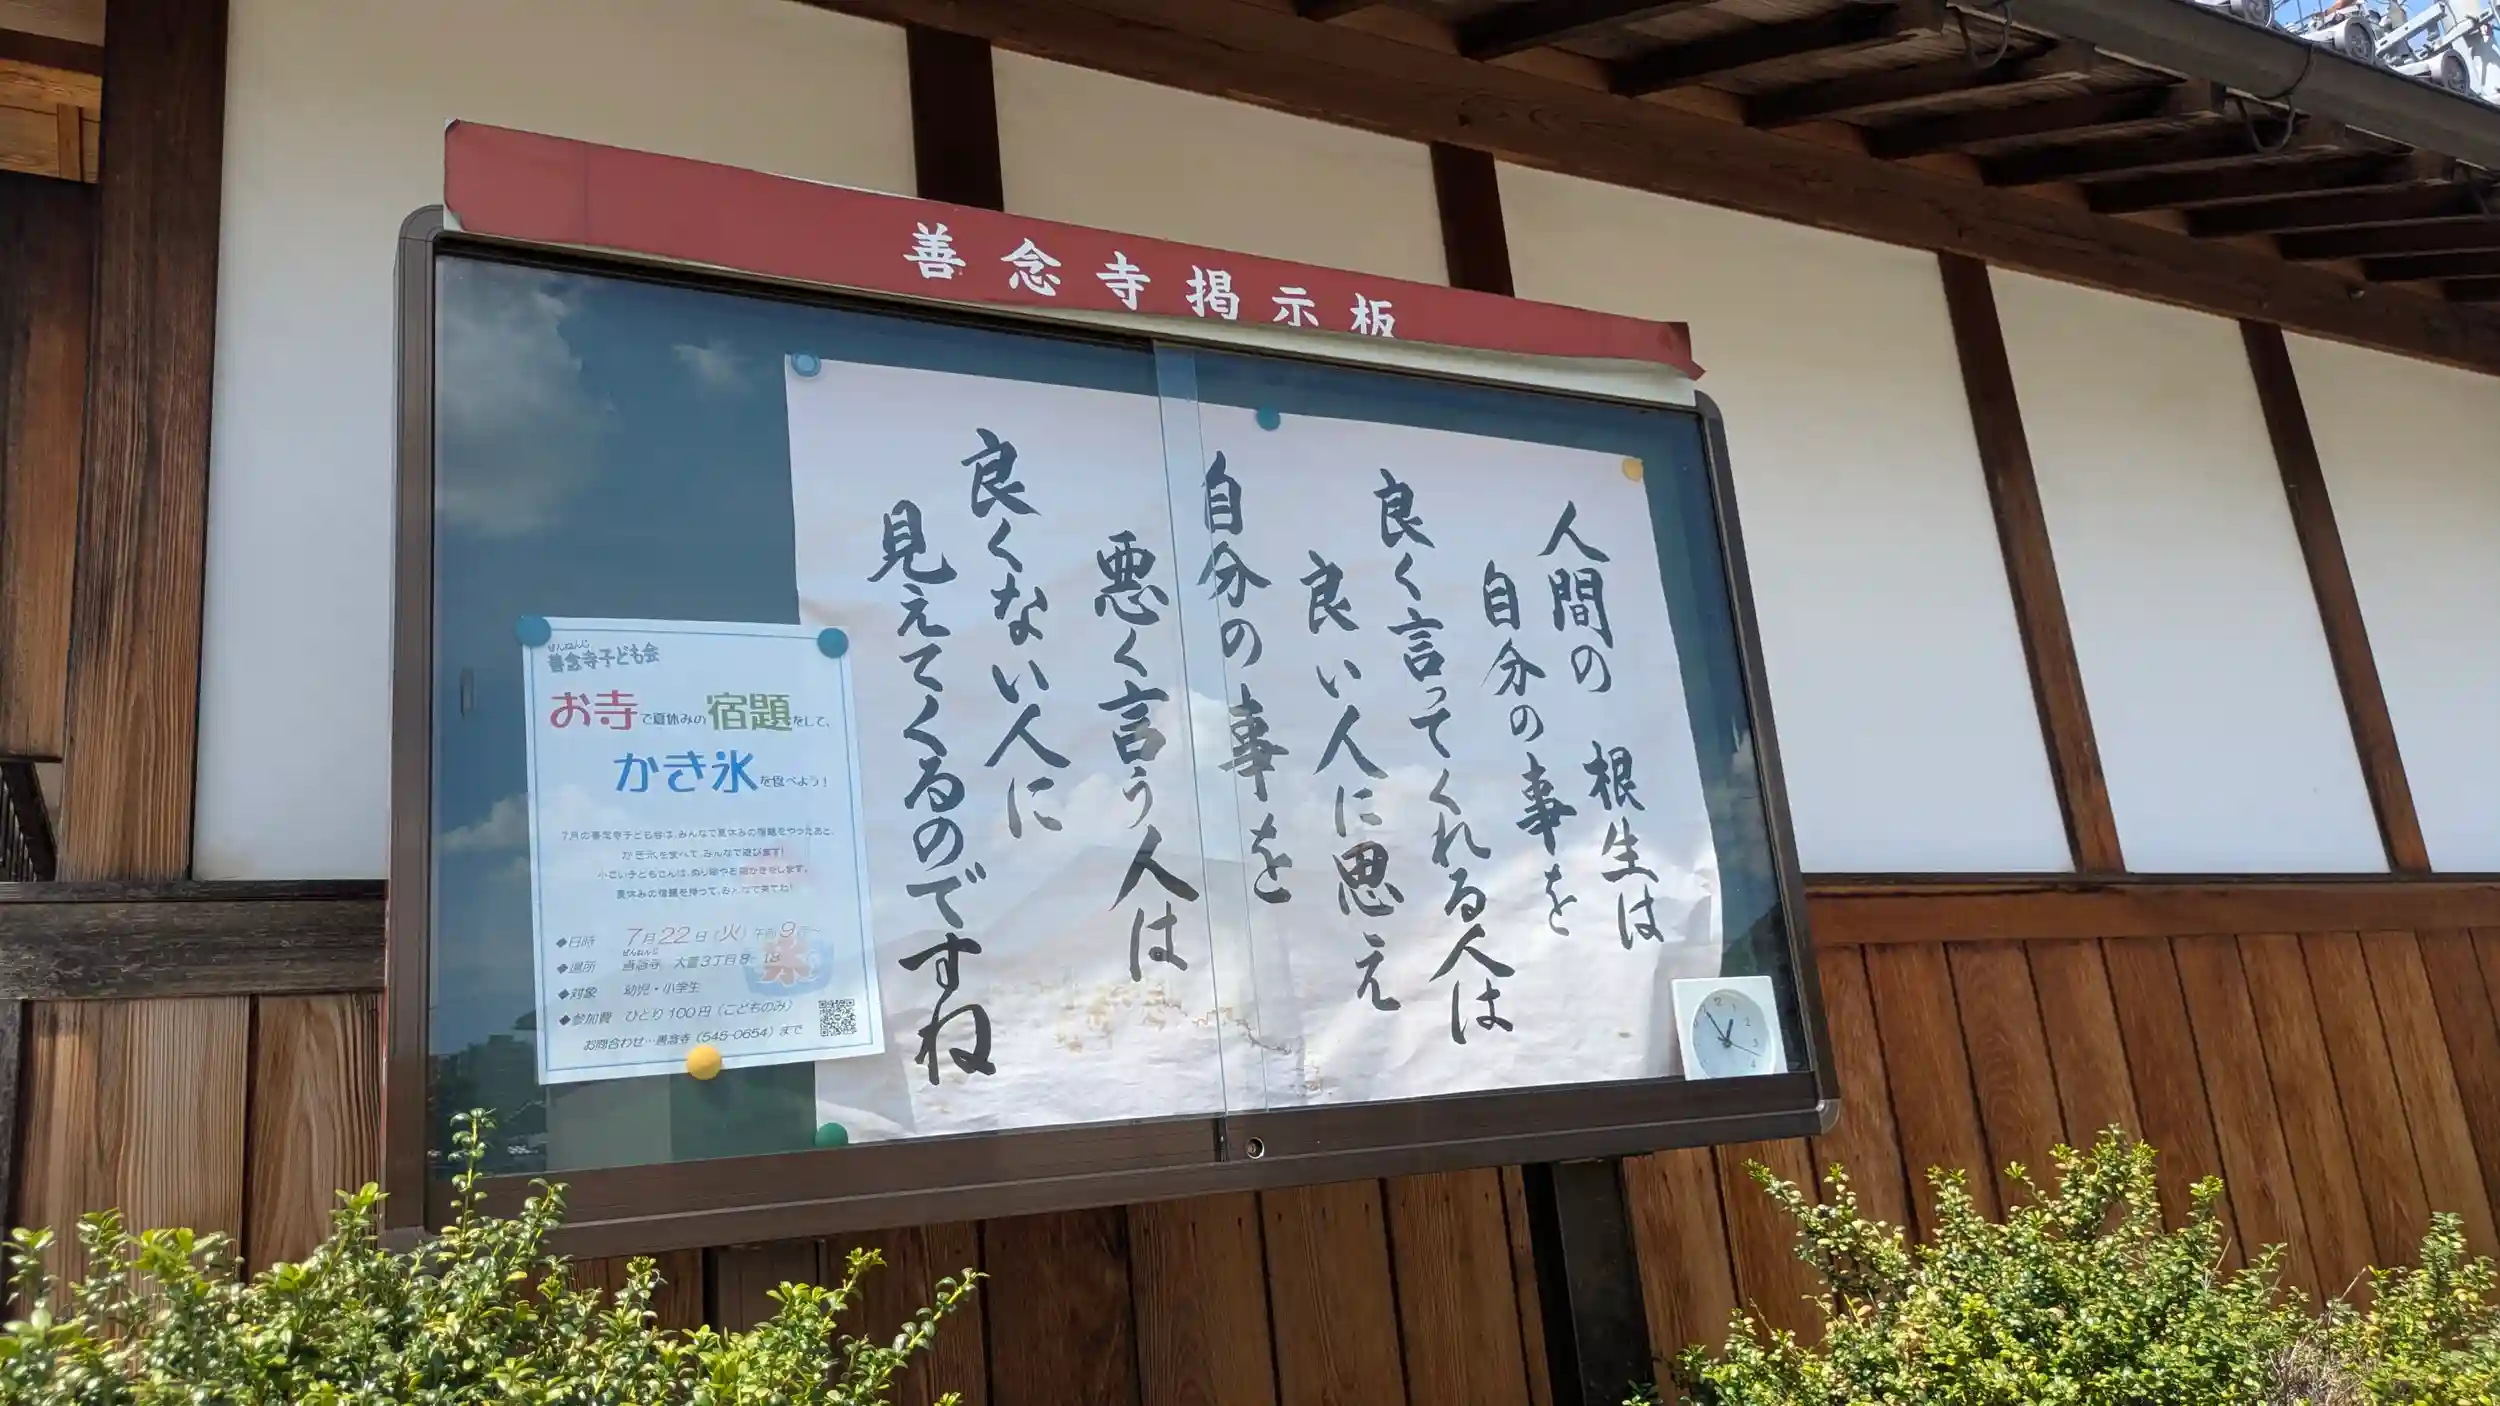 善念寺掲示板
人間の 根生は
自分の事を
良く言ってくれる人は
良い人に思え
自分の事を
悪く言う人は
良くない人に
見えてくるのですね
ぜんねんじ
善念寺子ども会
お寺で夏休みの宿題をして、
かき氷を食べよう!
7月の善念寺子ども会は、みんなで夏休みの宿題をやったあと、
かき氷を食べて、みんなで遊びます!
小さい子どもさんは、ぬり絵やお絵かきをします。
夏休みの宿題を持って、みんなで来てね!
◆日時 7月22日(火)午前9時~
ぜんねんじ
◆場所 善念寺 大萱3丁目8-18
◆対象 幼児・小学生
◆参加費 ひとり100円(こどものみ)
お問合わせ…善念寺(545-0654)まで